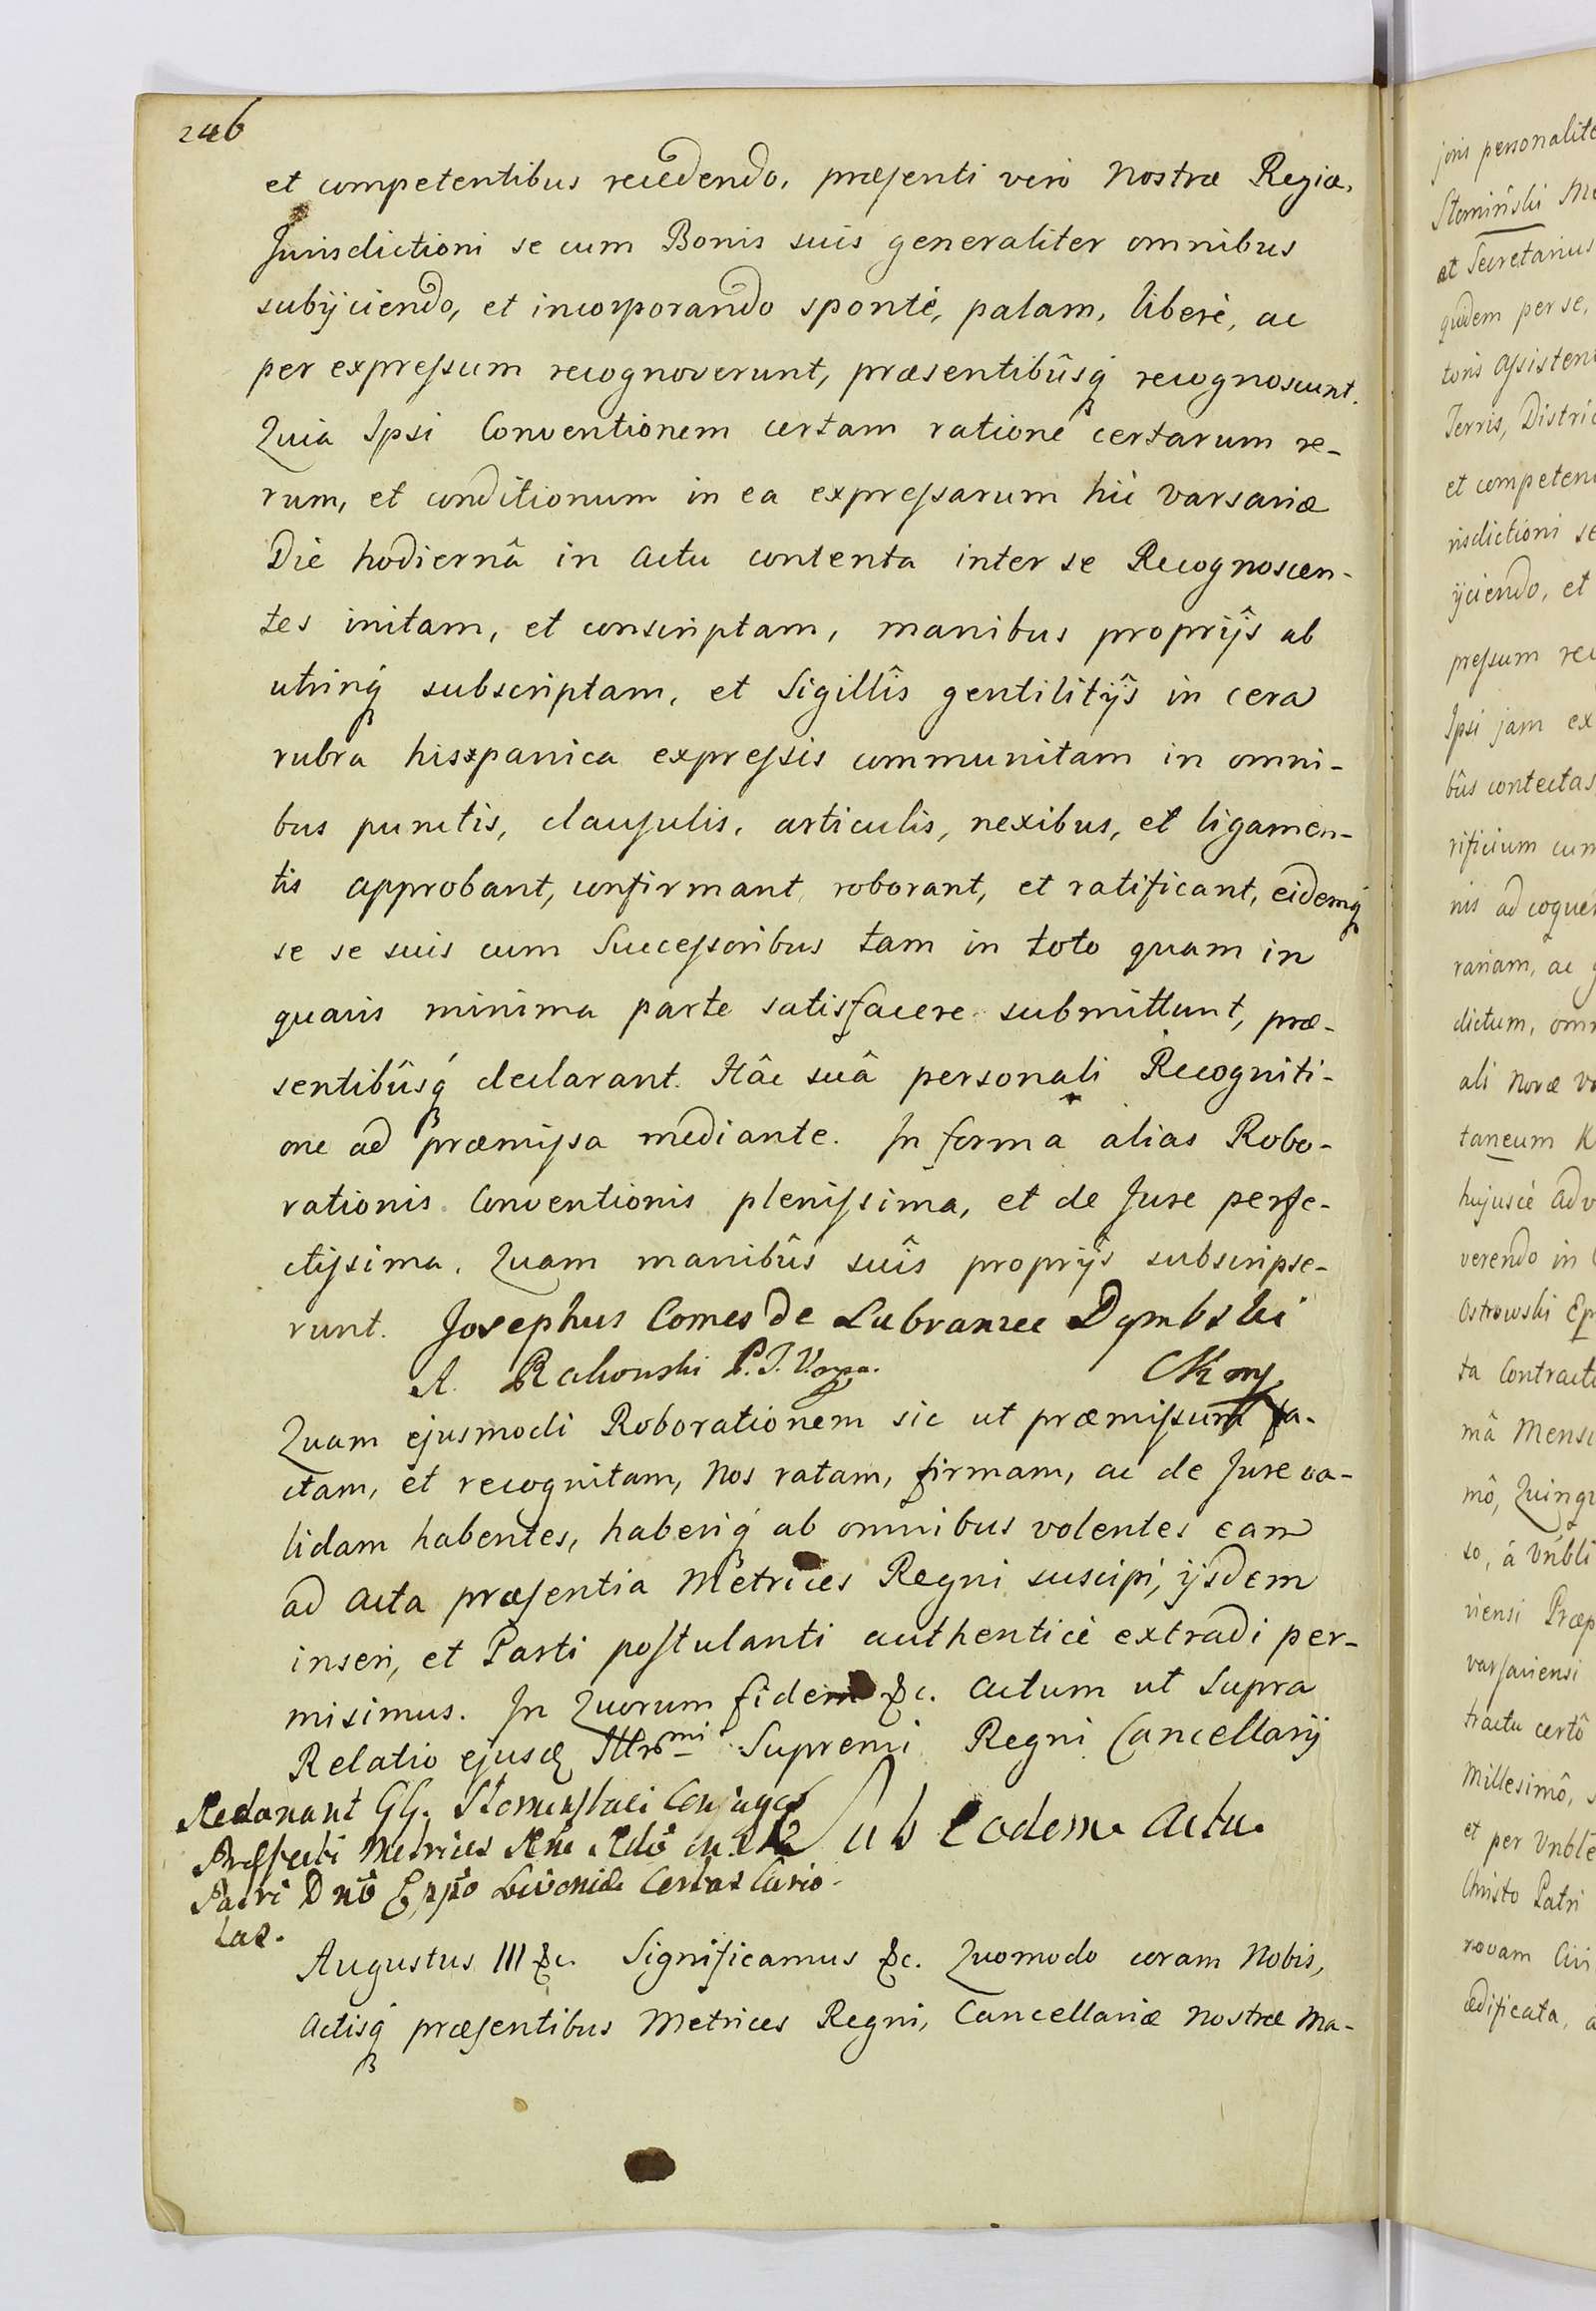 246
et competentibus recedendo, præsenti vero Nostræ Regiæ,
Jurisdictioni se cum Bonis suis generaliter omnibus
subijciendo, et incorporando spontè, palam, liberè, ac
per expressum recognoverunt, præsentibûsq́ recognoscunt.
Quia Ipsi Conventionem certam ratione certarum re-
rum, et conditionum in ea expressarum hic Varsaviæ
Die hodiernâ in actu contenta inter se Recognoscen-
tes initam, et conscriptam, manibus proprijs ab
utrinq́ subscriptam, et Sigillîs gentilitijs in cera
rubra hisxpanica expressis communitam in omni-
bus punctis, clausulis, articulis, nexibus, et ligamen-
tis approbant, confirmant, roborant, et ratificant, eidemq́
se se suis cum Successoribus tam in toto quam in
quavis minima parte satisfacere submittunt, præ-
sentibûsq́ declarant. Hâc suâ personali Recogniti-
one ad præmissa mediante. In forma alias Robo-
rationis Conventionis plenissima, et de Jure perfe-
ctissima. Quam manibûs suîs proprijs subscripse-
runt. Josephus Comes de Lubraniec Dąmbski
A. Rakowski
Quam ejusmodi Roborationem sic ut præmissum fa-
ctam, et recognitam, Nos ratam, firmam, ac de Jure va-
lidam habentes, haberiq́ ab omnibus volentes eam
ad acta præsentia Metrices Regni suscipi, ijsdem
inseri, et Parti postulanti authenticè extradi per-
misimus. In Quorum fidem &c. Actum ut Supra
Relatio ejusd Illrmi Supremi Regni Cancellarij
Conjuges
Metrices
Sub eodem Actu
Livoniæ Certas
Augustus III &c. Significamus &c. Quomodo coram Nobis,
Actisq́ præsentibus Metrices Regni, Cancellariæ Nostræ Ma-
joris personalite
Słomiński Me
at Secretarius
quidem per se,
toris Assistent
Terris, Distric
et competen
risdictioni se
ijciendo, et
pressum rec
Ipsi jam ex
bûs contectas
rificium cum
nis ad coquen
rariam, ac g
dictum, omn
ali Novæ V
taneum K
hujuscè adv
verendo in C
Ostrowski Ep
ta Contractu
mâ Mensi
mô, Quinqu
so, â Vnbli
viensi Præp
Varsaviensi
tractu certô
Millesimô, s
et per Vnble
Christo Patri
rovam Civi
ædificata, a